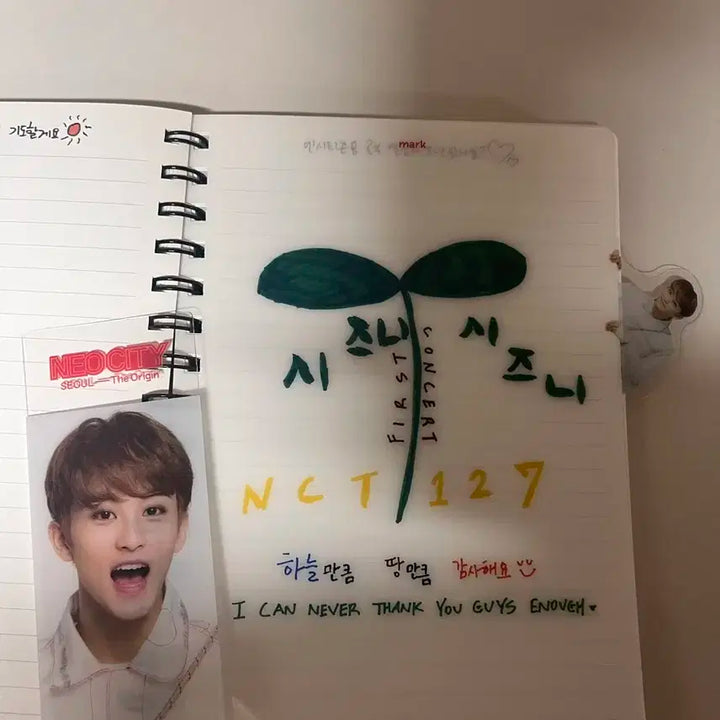 기도할게요
mark
시즈니 시즈니
FIRST CONCERT
NCT 127
하늘만큼 땅만큼 감사해요
I CAN NEVER THANK YOU GUYS ENOUGH ♥
NEO CITY
SEOUL — The Origin